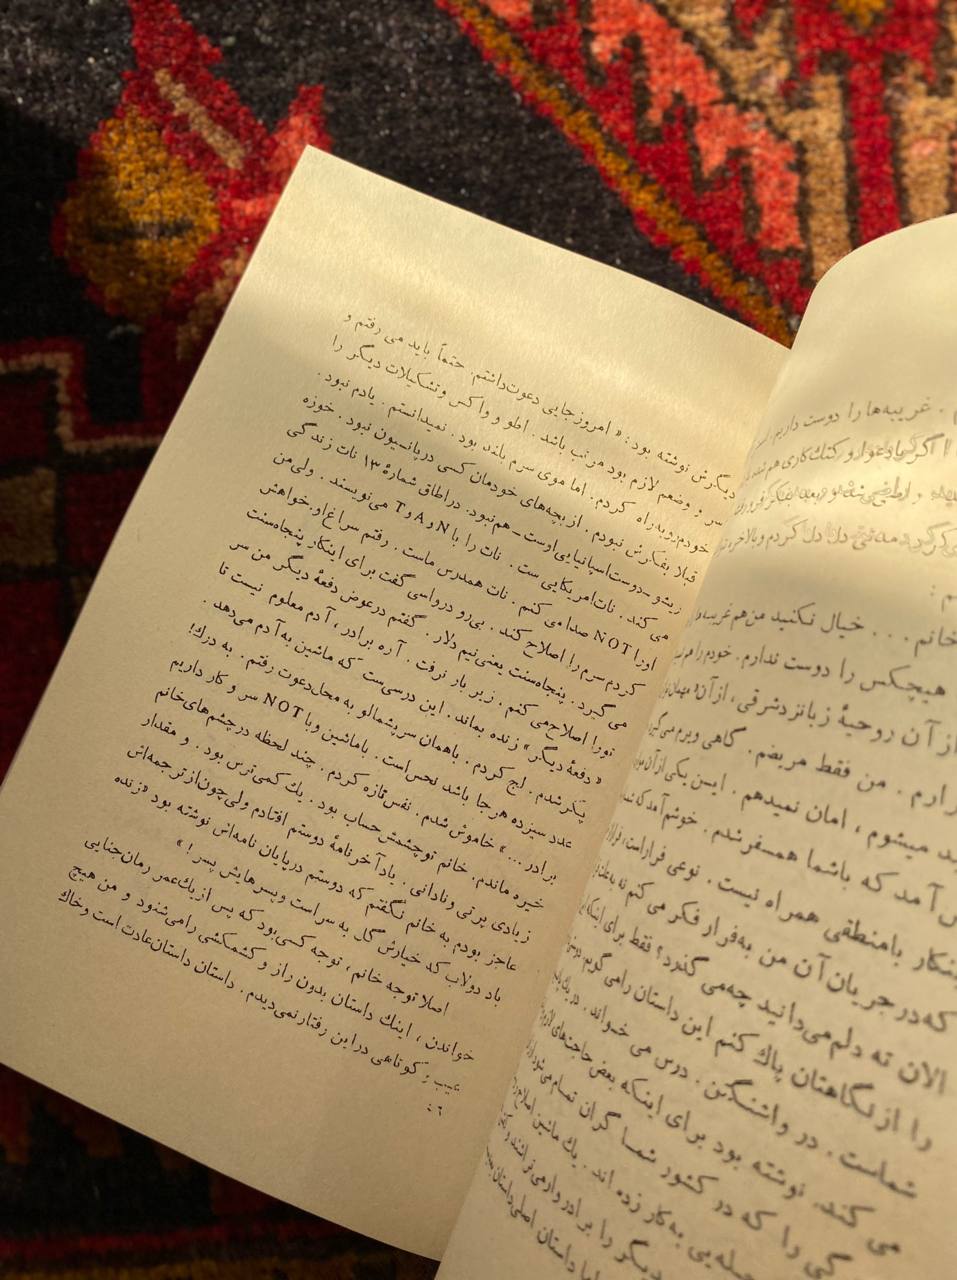 . غریبه‌ها را دوست داریم.
خانم . . . خیال نکنید من هم
هیچکس را دوست ندارم. خودم را هم
از آن روحیهٔ زبانزد شرقی، از آن
. من فقط مریضم . گاهی ویرم می گیرد
میشوم ، امان نمیدهم . این یکی از آن
آمد که باشما همسفر شدم . خوشم آمد که
بامنطقی همراه نیست . نوعی فرار است،
که در جریان آن من به فرار فکر می کنم نه به
الان ته دلم می‌دانید چه می گذرد؟ فقط برای اینکه
را از نگاهتان پاک کنم این داستان را می گویم.
شماست . در واشنگتن . درس می خواند .
می کند. نوشته بود برای اینکه بعض حاجت‌های
کی را که در کشور شما گران تمام می‌شود
به کار زده اند . یک ماشین اصلاح
دیگر را برادر وار می تراشند و
داستان اصلی داستان
دیگرش نوشته بود: « امروز جایی دعوت‌داشتم. حتماً باید می رفتم و
سر و وضعم لازم بود مرتب باشد . اطو و واکس و تشکیلات دیگر را
خودم روبه‌راه کردم. اما موی سرم بلند بود. نمیدانستم . یادم نبود .
قبلا بفکرش نبودم . از بچه‌های خودمان کسی در پانسیون نبود . خوزه
ریشو ــ دوست اسپانیایی اوست ــ هم نبود. در اطاق شمارهٔ ۱۳ نات زندگی
می کند . نات امریکایی ست . نات را با N و A و T می‌نویسند . ولی من
اورا NOT صدا می کنم . نات همدرس ماست . رفتم سراغ او. خواهش
کردم سرم را اصلاح کند . بی‌رو درواسی گفت برای اینکار پنجاه سنت
می گیرد . پنجاه‌سنت یعنی نیم دلار . گفتم در عوض دفعهٔ دیگر من سر
تورا اصلاح می کنم . زیر بار نرفت . آره برادر ، آدم معلوم نیست تا
« دفعهٔ دیگر » زنده بماند . این درسی‌ست که ماشین به آدم می‌دهد .
پکر شدم . لج کردم . باهمان سرپشمالو به محل دعوت رفتم . به درک!
عدد سیزده هر جا باشد نحس است . باماشین و با NOT سر و کار داریم
برادر ...» خاموش شدم. نفس تازه کردم . چند لحظه در چشم‌های خانم
خیره ماندم. خانم توچشمش حساب بود . یک کمی ترس بود . و مقدار
زیادی پرتی و نادانی . یاد آخر نامهٔ دوستم افتادم ولی چون از ترجمه‌اش
عاجز بودم به خانم نگفتم که دوستم در پایان نامه‌اش نوشته بود «زنده
باد دولاب که خیارش گل به سر است و پسرهایش پسر ! »
اصلا توجه خانم ، توجه کسی بود که پس از یک عمر رمان جنایی
خواندن ، اینک داستان بدون راز و کشمکشی را می‌شنود و من هیچ
عیب و کوتاهی در این رفتار نمی‌دیدم. داستان داستان عادت است و خاک
۴۶